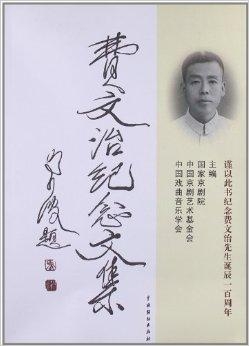 费文治纪念文集
谨以此书纪念费文治先生诞辰一百周年
主编
国家京剧院
中国京剧艺术基金会
中国戏曲音乐学会
题
中国戏剧出版社